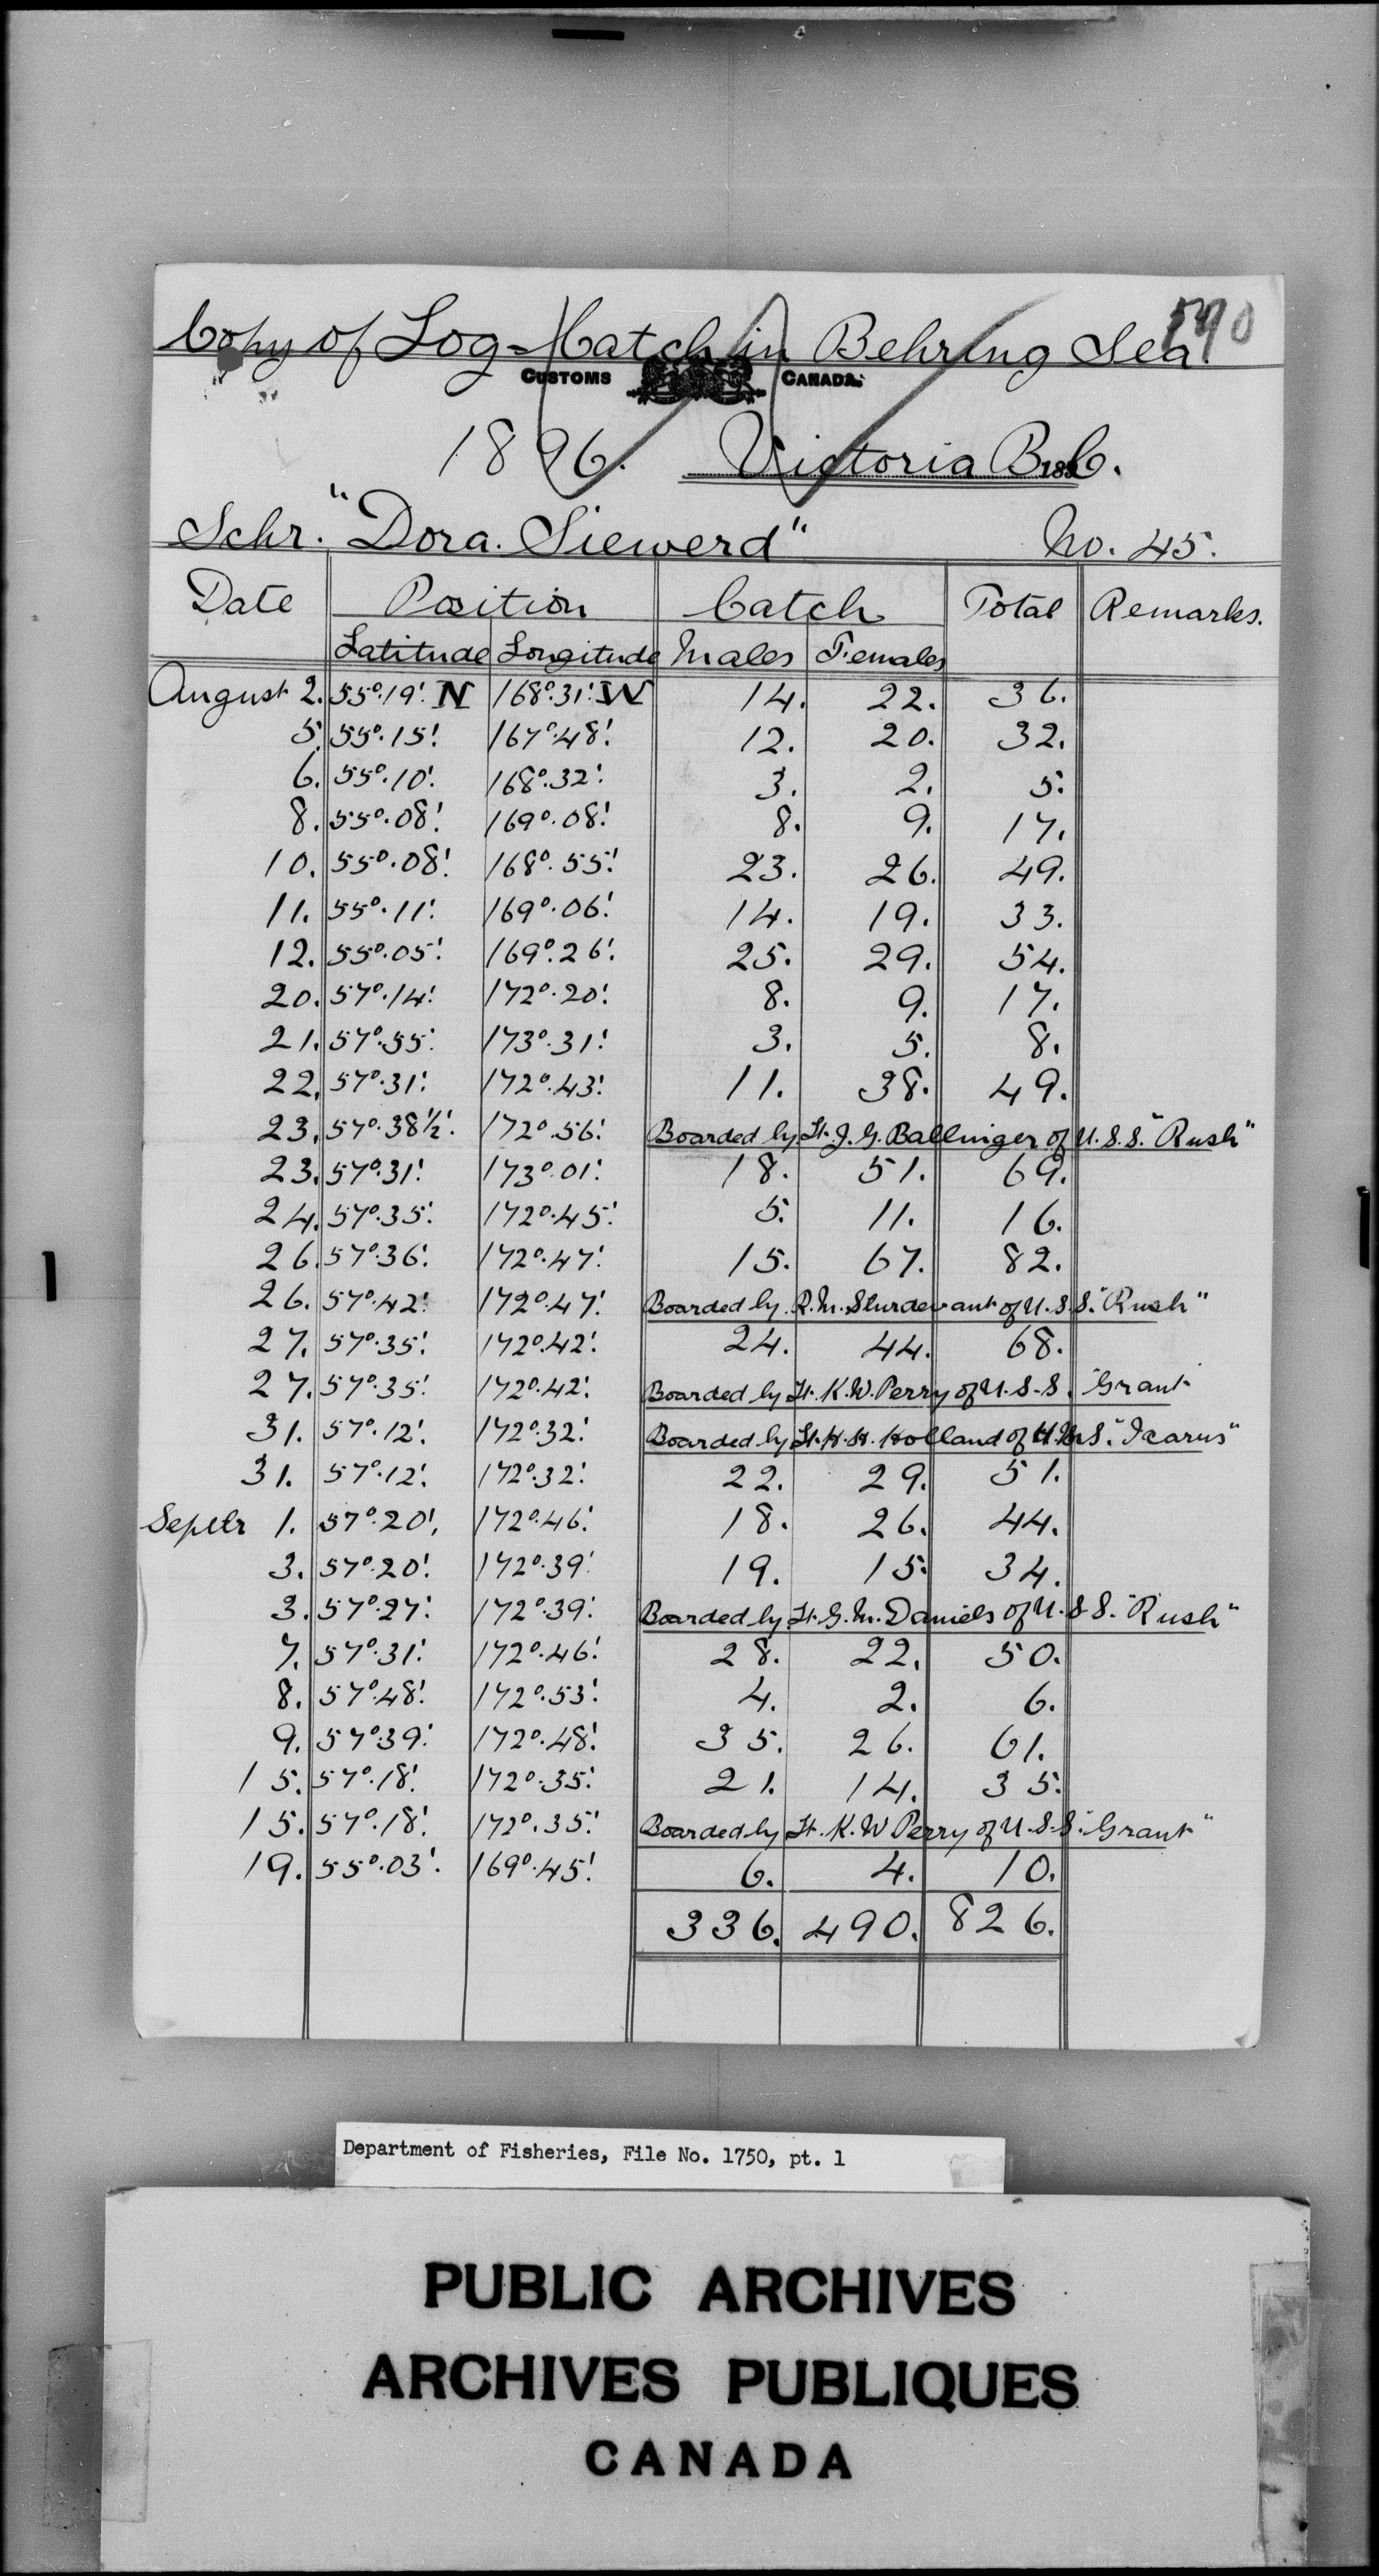 590
Copy of Log-Catch in Behring Sea.
CUSTOMS CANADA.
1896. Victoria B.C.
189
Schr. "Dora. Siewerd" No. 45.
Date Position Catch Total Remarks.
Latitude Longitude Males Females
August 2. 55°.19'. N 168°.31'. W 14. 22. 36.
5. 55°.15'. 167°.48'. 12. 20. 32.
6. 55°.10'. 168°.32'. 3. 2. 5.
8. 55°.08'. 169°.08'. 8. 9. 17.
10. 55°.08'. 168°.55'. 23. 26. 49.
11. 55°.11'. 169°.06'. 14. 19. 33.
12. 55°.05'. 169°.26'. 25. 29. 54.
20. 57°.14'. 172°.20'. 8. 9. 17.
21. 57°.55'. 173°.31'. 3. 5. 8.
22. 57°.31'. 172°.43'. 11. 38. 49.
23. 57°.38½'. 172°.56'. Boarded by Lt. J. G. Ballinger of U.S.S. "Rush"
23. 57°.31'. 173°.01'. 18. 51. 69.
24. 57°.35'. 172°.45'. 5. 11. 16.
26. 57°.36'. 172°.47'. 15. 67. 82.
26. 57°.42'. 172°.47'. Boarded by R. M. Sturdevant of U.S.S. "Rush"
27. 57°.35'. 172°.42'. 24. 44. 68.
27. 57°.35'. 172°.42'. Boarded by Lt. K. W. Perry of U.S.S. Grant
31. 57°.12'. 172°.32'. Boarded by Lt. H. H. Holland of H.M.S. "Icarus"
31. 57°.12'. 172°.32'. 22. 29. 51.
Septr 1. 57°.20'. 172°.46'. 18. 26. 44.
3. 57°.20'. 172°.39'. 19. 15. 34.
3. 57°.27'. 172°.39'. Boarded by Lt. G. M. Daniels of U.S.S. "Rush"
7. 57°.31'. 172°.46'. 28. 22. 50.
8. 57°.48'. 172°.53'. 4. 2. 6.
9. 57°.39'. 172°.48'. 35. 26. 61.
15. 57°.18'. 172°.35'. 21. 14. 35.
15. 57°.18'. 172°.35'. Boarded by Lt. K. W Perry of U.S.S. "Grant"
19. 55°.03'. 169°.45'. 6. 4. 10.
336. 490. 826.
Department of Fisheries, File No. 1750, pt. 1
PUBLIC ARCHIVES
ARCHIVES PUBLIQUES
CANADA